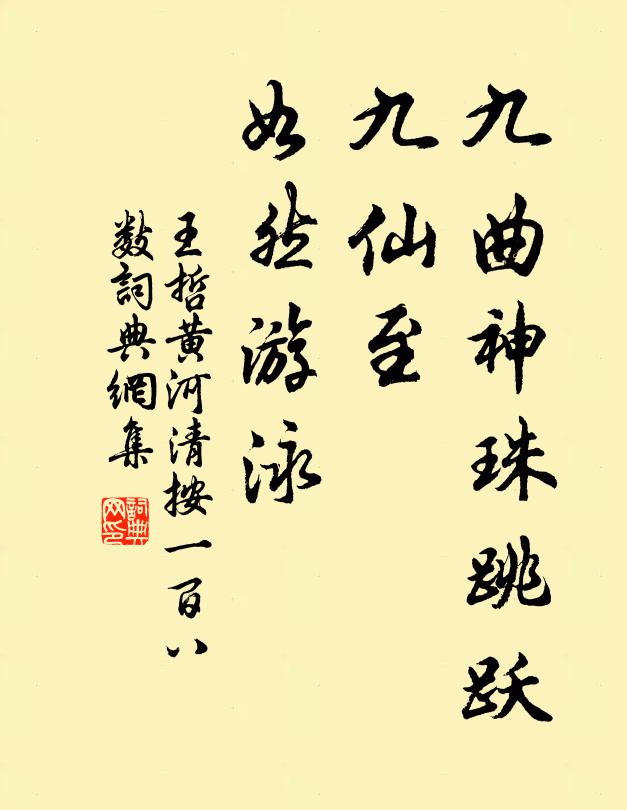 九曲神珠跳跃
九仙至
如然游泳
王哲黄河清按一百八
數詞典網集
詞典
网印